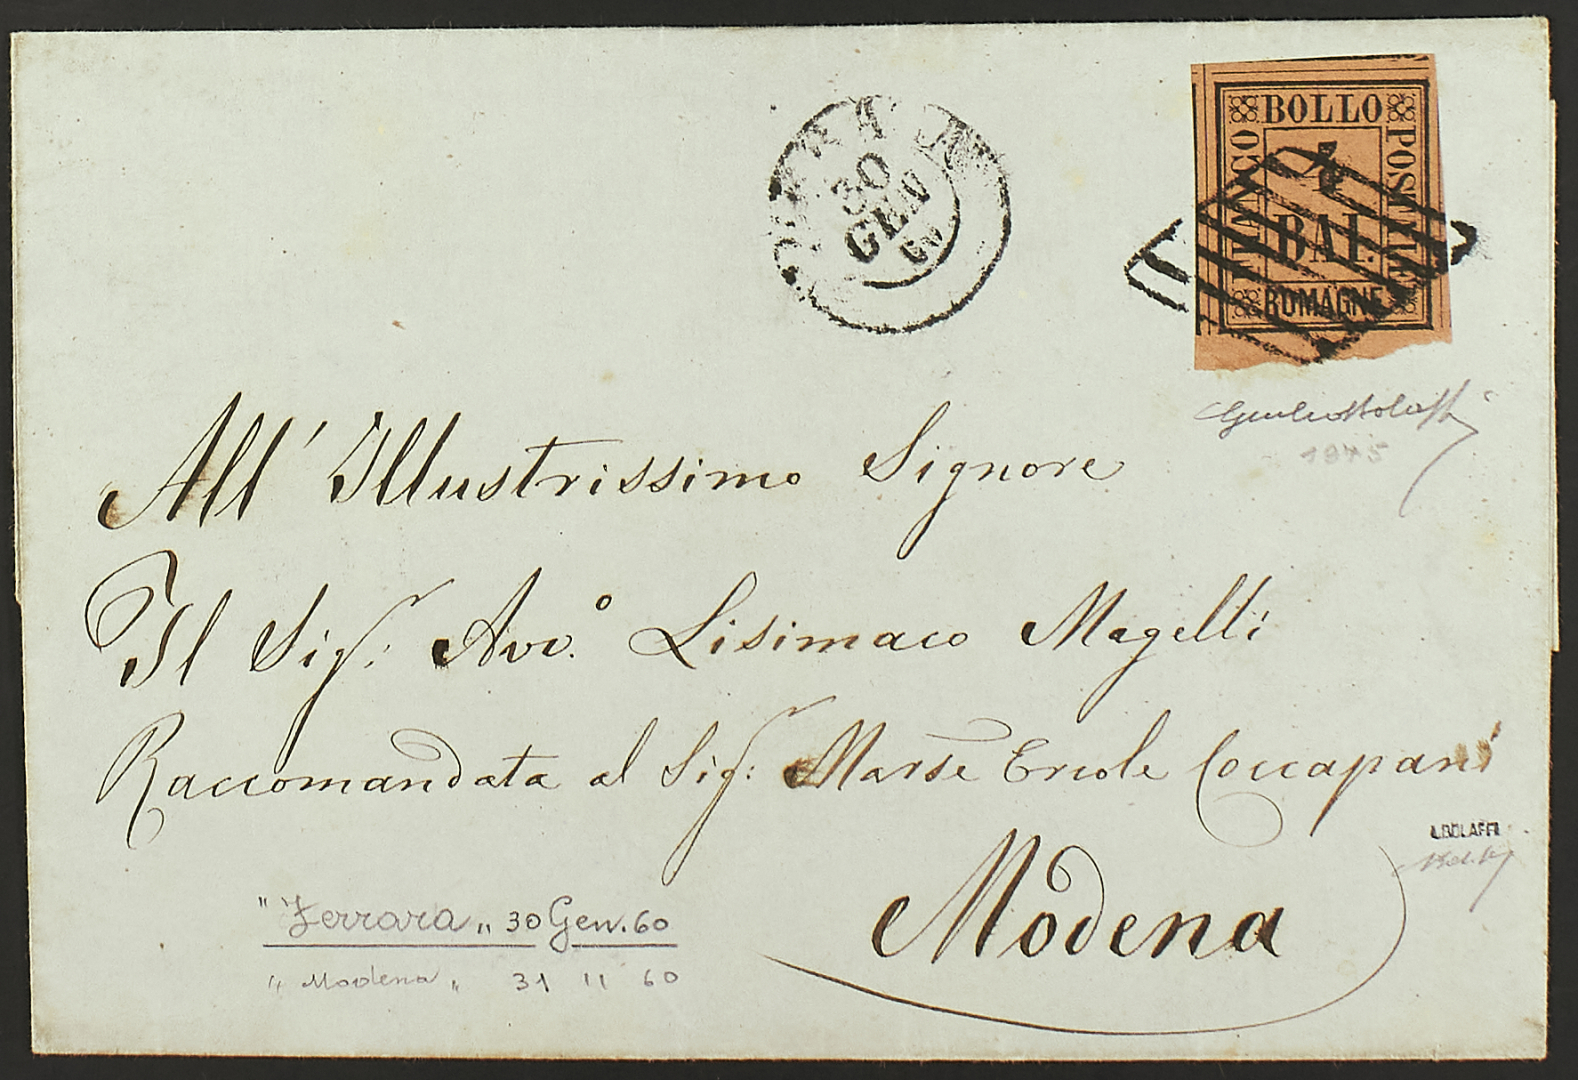 FERRARA
30
GEN
60
BOLLO
FRANCO
POSTALE
BAI.
ROMAGNE
Giulio Bolaffi
1945
All' Illustrissimo Signore
Il Sigr: Avvo. Lisimaco Magelli
Raccomandata al Sigr: Marse Ercole Coccapani
A. BOLAFFI
Modena
"Ferrara" 30 Gen. 60
"Modena" 31 11 60